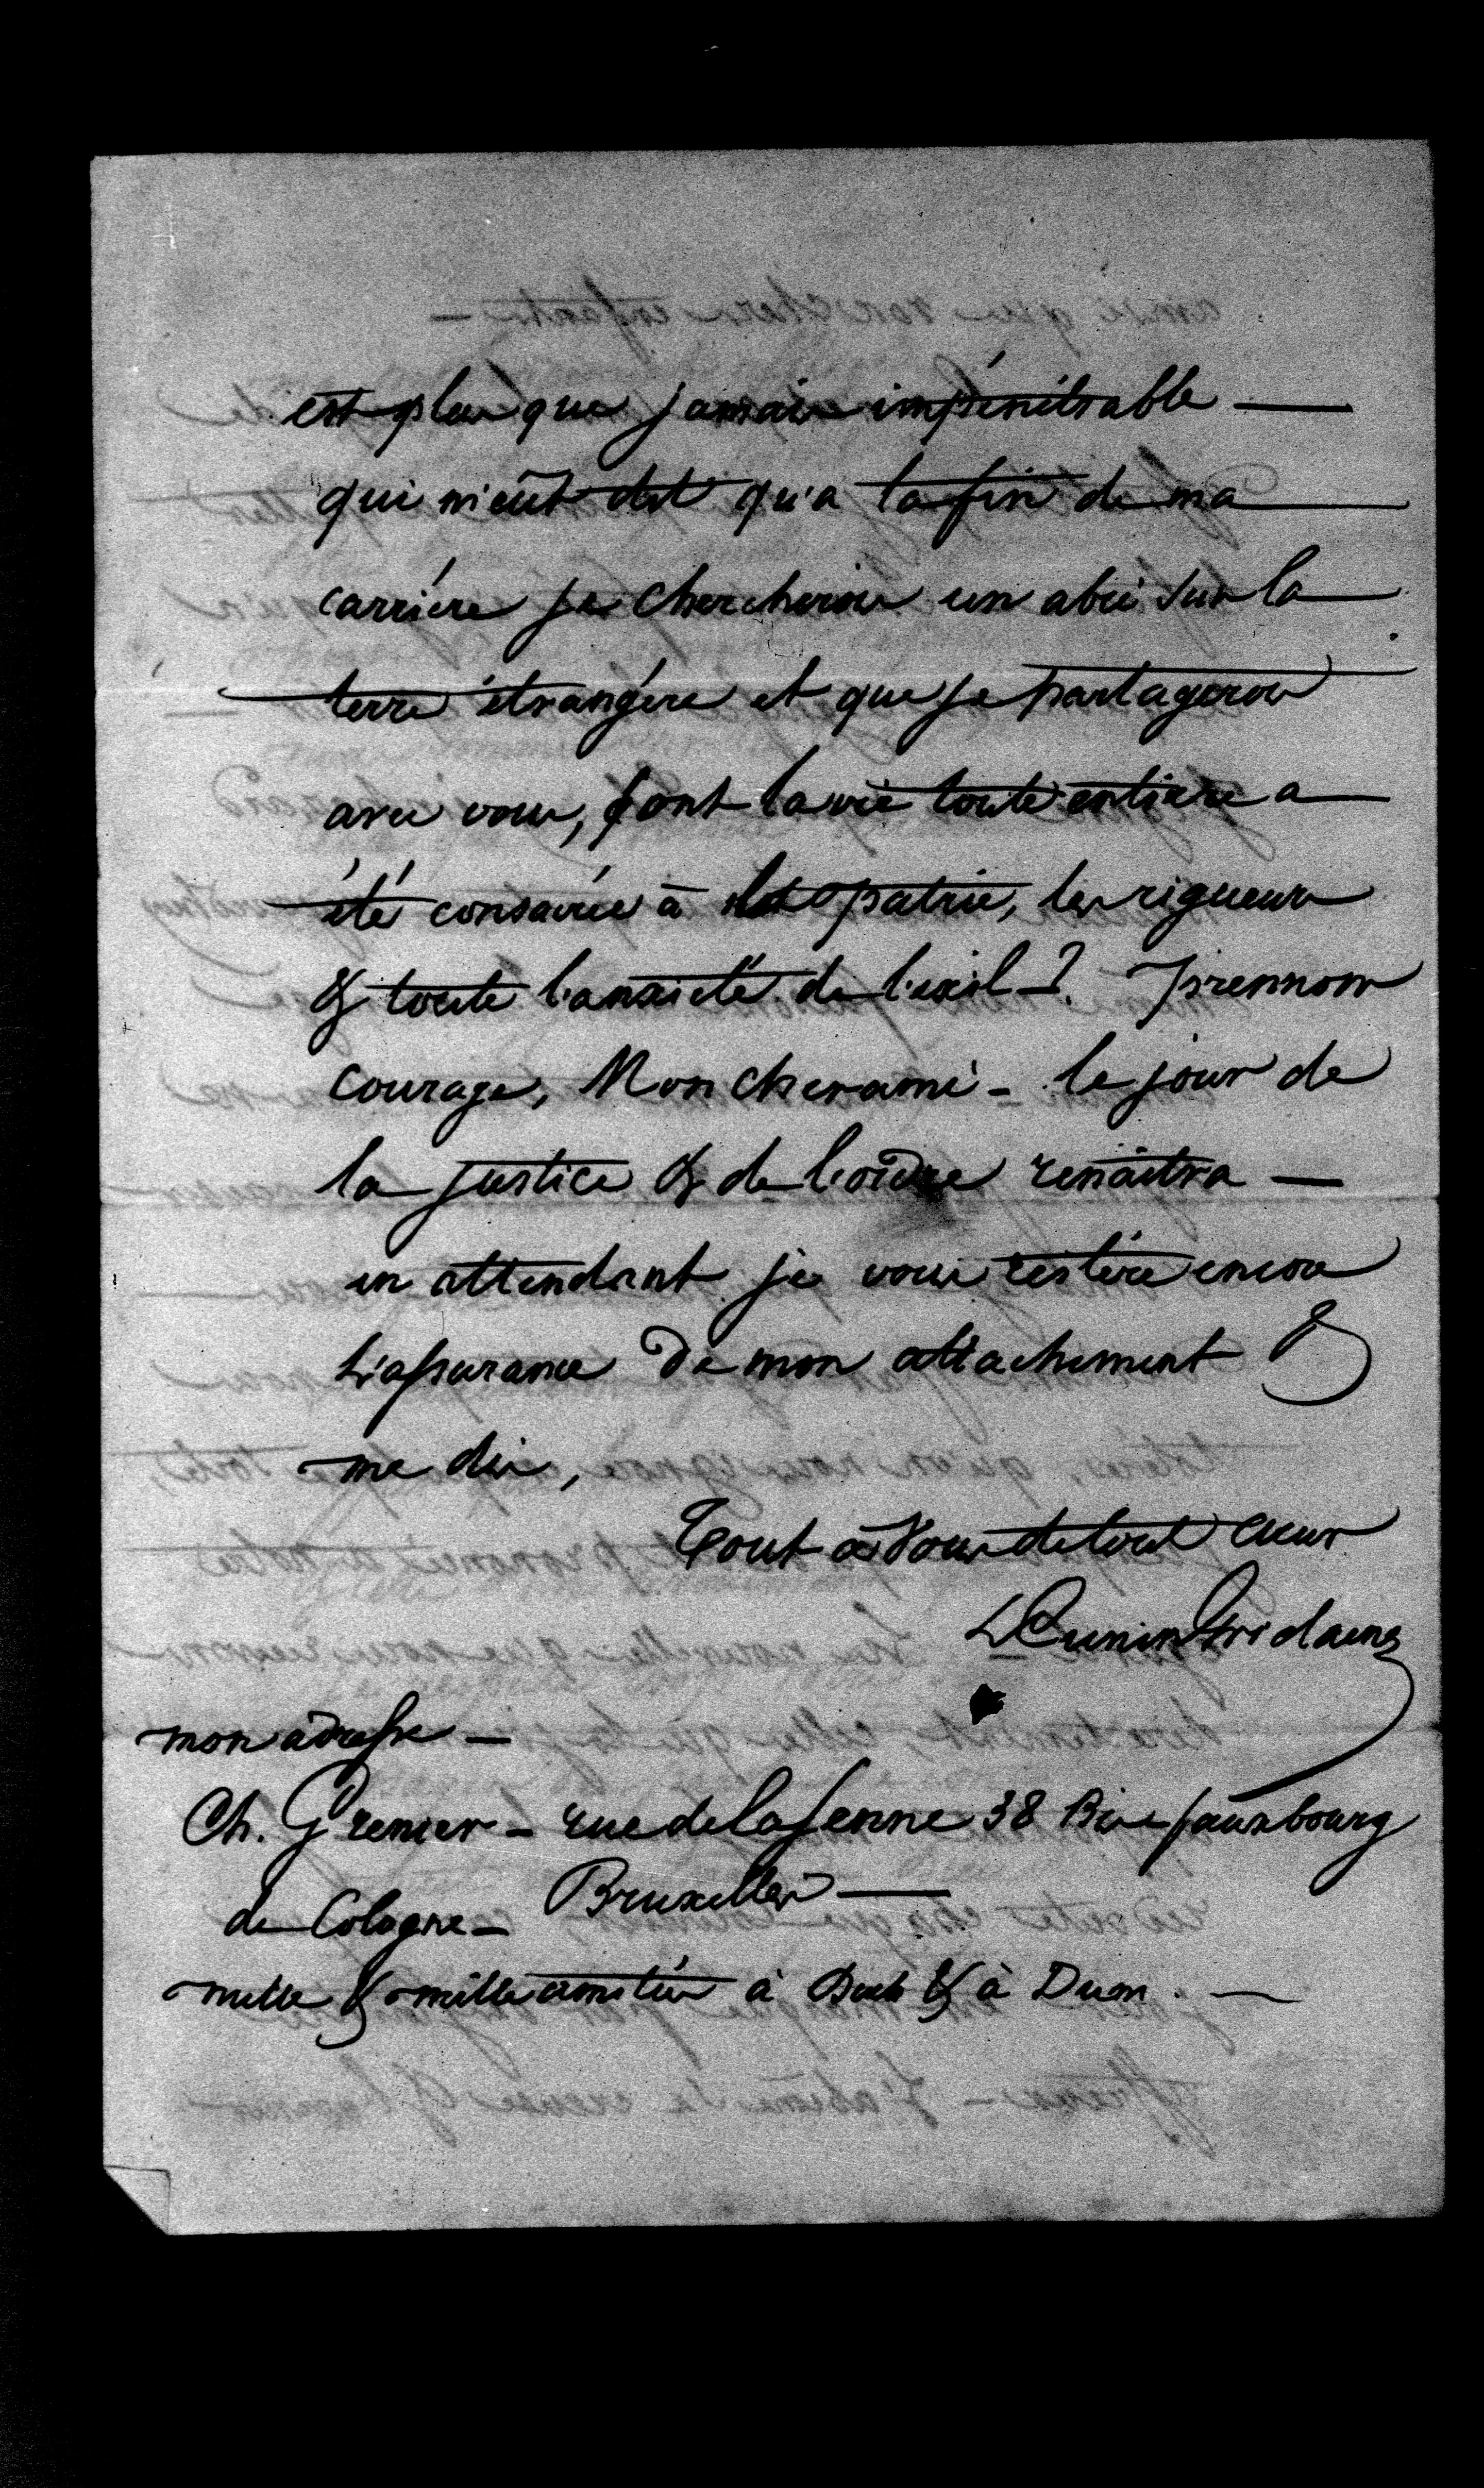 est plus que jamais impénétrable —
qui m'eût dit qu'a la fin de ma
carrière je chercherois un abri sur la
terre étrangère et que je partagerois
avec vous, dont la vie toute entiere a
été consacrée à la patrie, les rigueurs
& toute l'anxieté de l'exil —? Prennons
courage, Mon cher ami — le jour de
la justice & de l'ordre renaîtra —
en attendant je vous réitère encore
L'assurance de mon attachement &
me dis,
Tout à Vous de tout cœur
L Cunin Gridaine
mon adresse —
Ch. Grenier — rue de la Senne 38 Bis faubourg
de Cologne — Bruxelles —
mille & mille amitiés à & à Dum. —